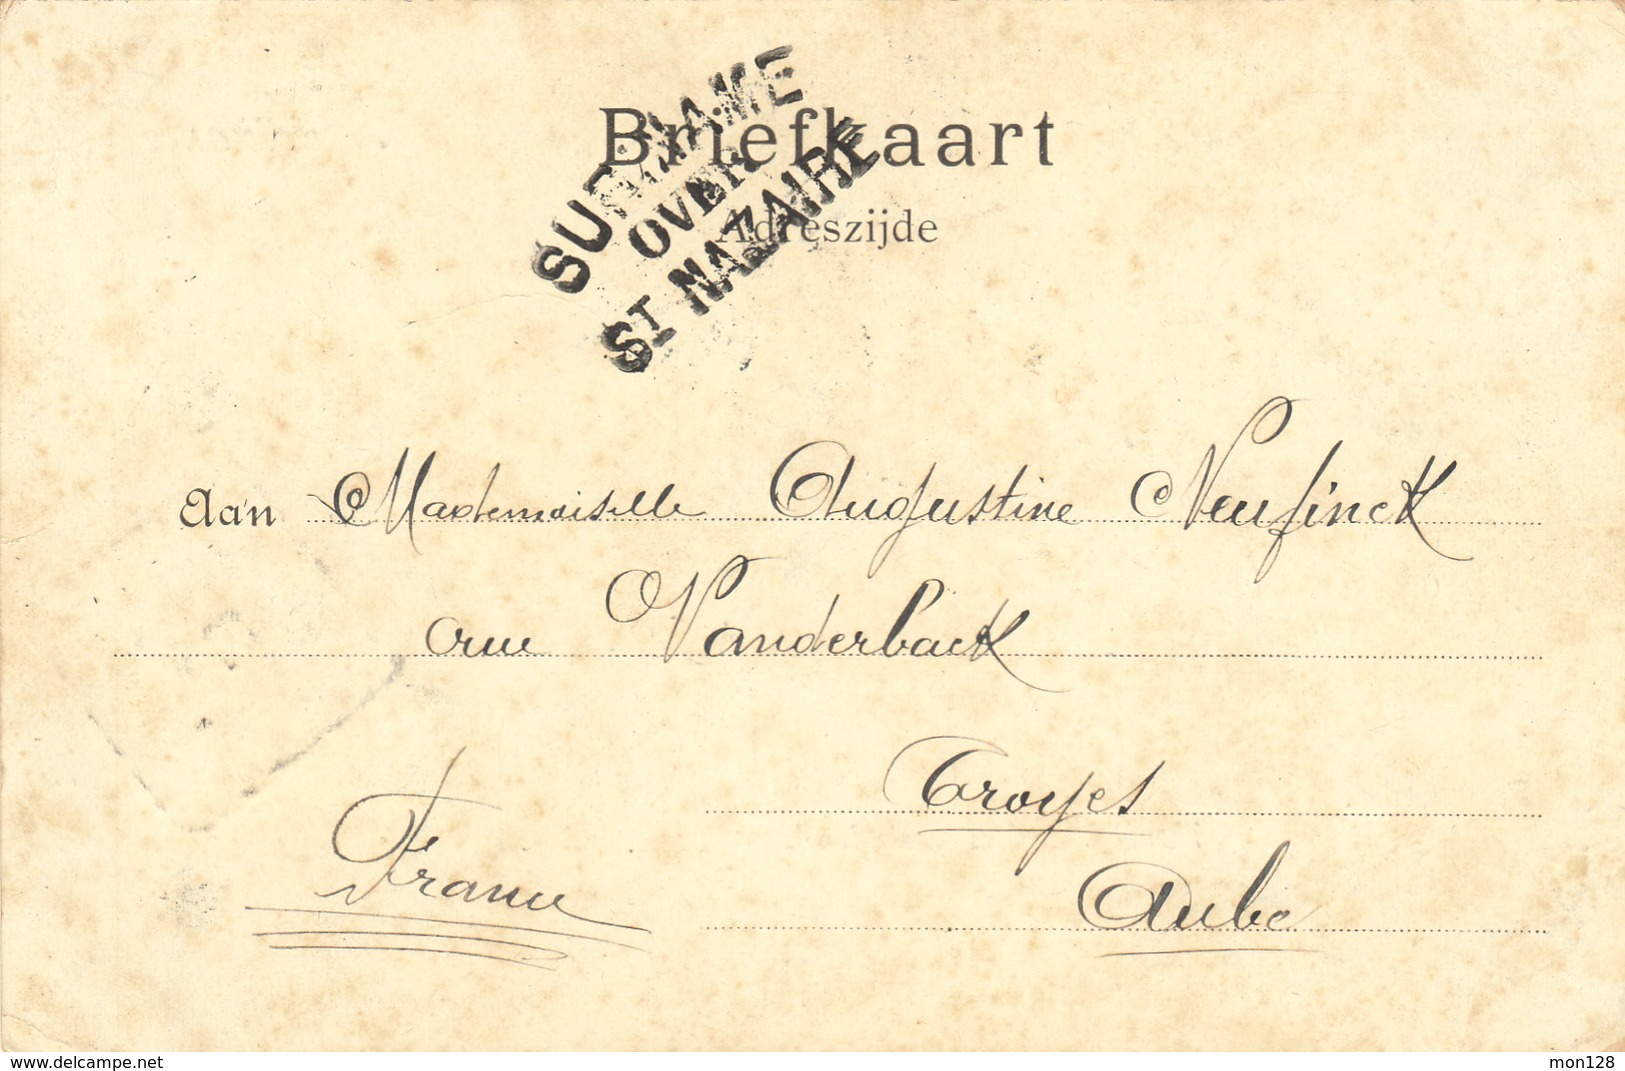 SURINAME
OVER
ST NAZAIRE
Briefkaart
Adreszijde
Aan Mademoiselle Augustine Neufinck
rue Vanderback
Troyes
France
Aube
www.delcampe.net
mon128